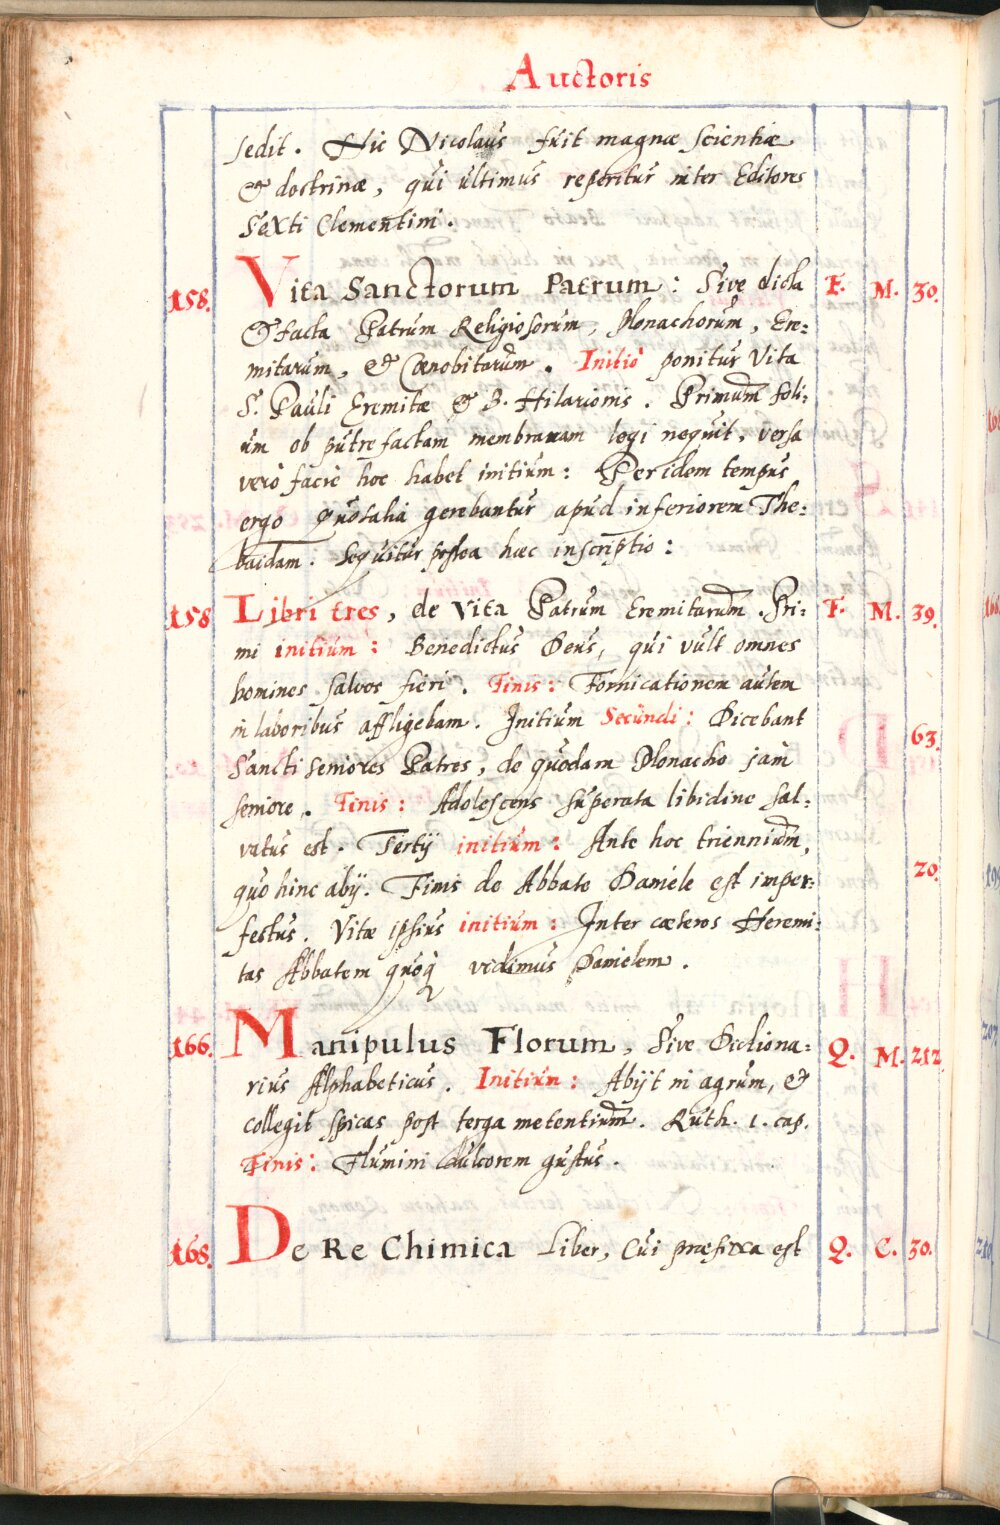 Auctoris
sedit. Hic Nicolaus fuit magnæ scientiæ
& doctrinæ, qui ultimus reperitur inter Editores
Sexti Clementini.
158. Vita Sanctorum Patrum: Sive dicta F. M. 30.
& facta Patrum Religiosorum, Monachorum, Ere:
mitarum, & Cœnobitarum. Initio ponitur Vita
S. Pauli Eremitæ & B. Hilarionis. Primum foli:
um ob putrefactam membranam legi nequit, versa
verò facie hoc habet initium: Per idem tempus
ergo quo talia gerebantur apud inferiorem The:
baidam. Sequitur postea hæc inscriptio:
158 Libri tres, de Vita Patrum Eremitarum. Pri: F. M. 39.
mi initium: Benedictus Deus, qui vult omnes
homines salvos fieri. Finis: Fornicationem autem
in laboribus affligebam. Initium Secundi: Dicebant 63.
Sancti seniores Patres, de quodam Monacho jam
seniore. Finis: Adolescens superata libidine sal:
vatus est. Tertij initium: Ante hoc triennium,
quo hinc abij. Finis de Abbate Daniele est imper: 20.
fectus. Vitæ ipsius initium: Inter cæteros Heremi:
tas Abbatem quoq vidimus Danielem.
166. Manipulus Florum, Sive Dictiona: Q. M. 212
rius Alphabeticus. Initium: Abijt in agrum, &
collegit spicas post terga metentium. Ruth. 1. cap.
Finis: Flumini dulcorem gustus.
168. De Re Chimica Liber, Cui præfixa est Q. C. 30.